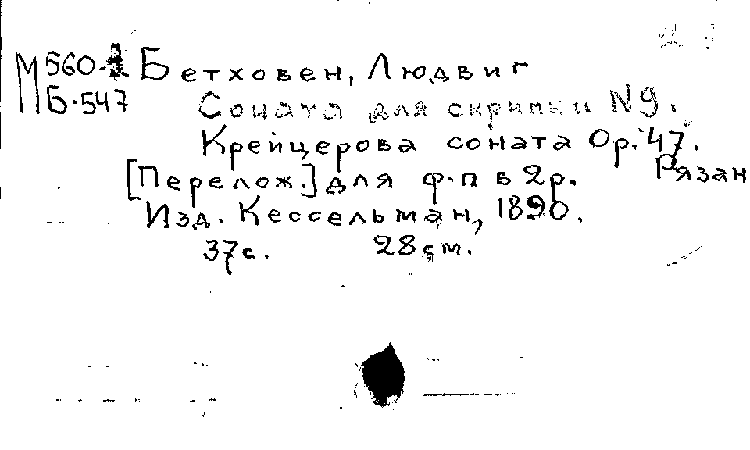 М 560-1 Бетховен, Людвиг
Б-547 Соната для скрипки N9.
Крейцерова соната Op. 47.
[Перелож.] для ф-п в 2р. Рязан
Изд. Кессельман, 1890.
37с. 28см.